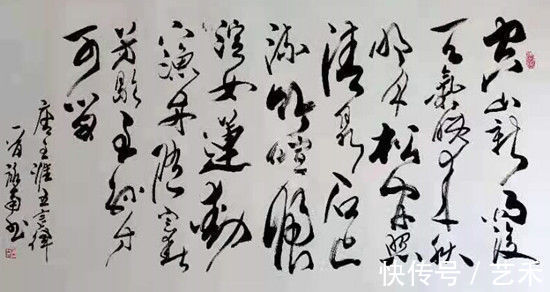 空山新雨後
天氣晚来秋
明月松间照
清泉石上
流竹喧归
浣女蓮动
下渔舟随意春
芳歇王孙自
可留
唐王維五言律
一首书
快传号 / 艺术